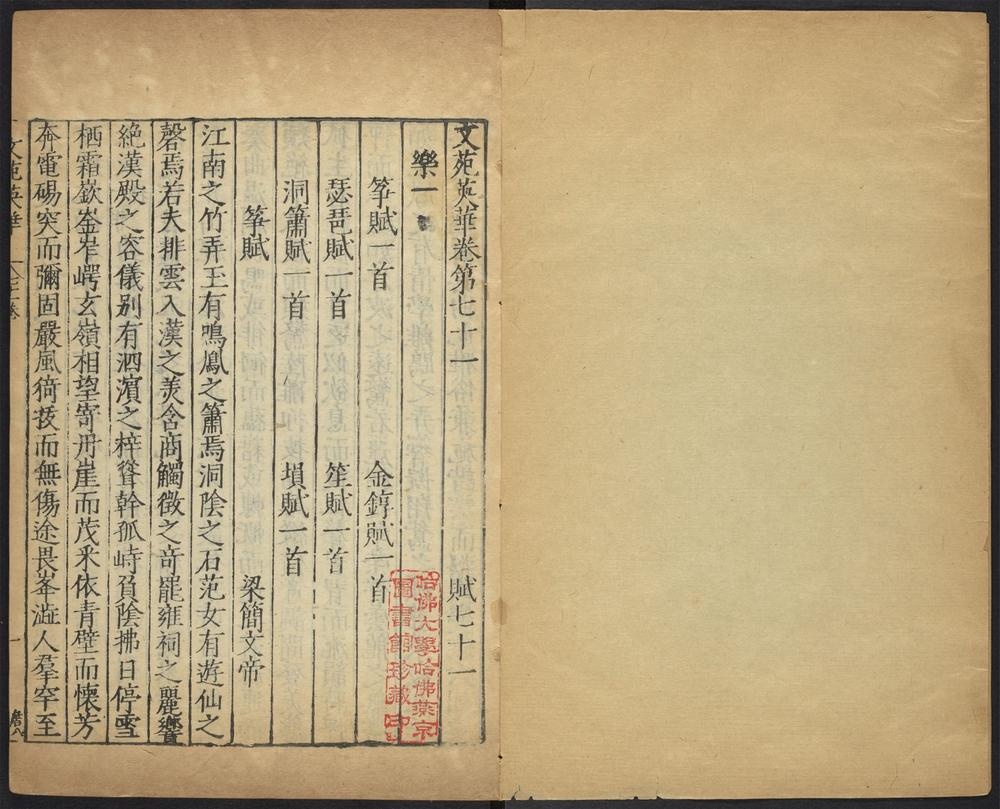 文苑英華卷第七十一 賦七十一
樂一
箏賦一首 金錞賦一首
瑟琶賦一首 笙賦一首
洞簫賦一首 塤賦一首
箏賦 梁簡文帝
江南之竹弄玉有鳴鳳之簫焉洞陰之石范女有遊仙之
磬焉若夫排雲入漢之美含商觸徵之奇罷雍祠之麗響
絶漢殿之容儀别有泗濱之梓聳幹孤峙負陰拂日停雪
栖霜嶔崟岞㟧玄嶺相望寄丹崖而茂采依青壁而懷芳
奔電碭突而彌固嚴風猗拔而無傷途畏峯澁人羣罕至
文苑英華
一
哈佛大學哈佛燕京
圖書館珍藏印